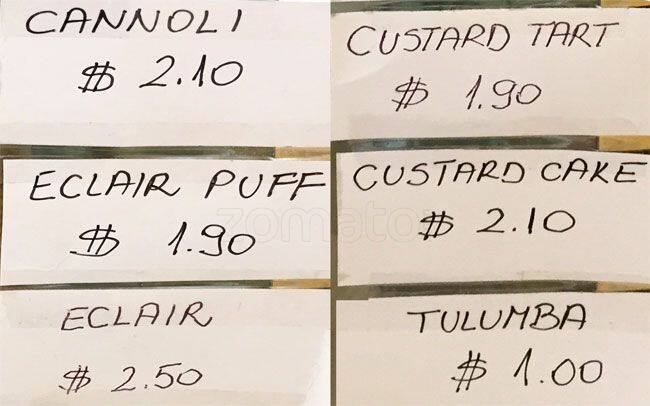 CANNOLI
$ 2.10
ECLAIR PUFF
$ 1.90
ECLAIR
$ 2.50
CUSTARD TART
$ 1.90
CUSTARD CAKE
$ 2.10
TULUMBA
$ 1.00
zomato